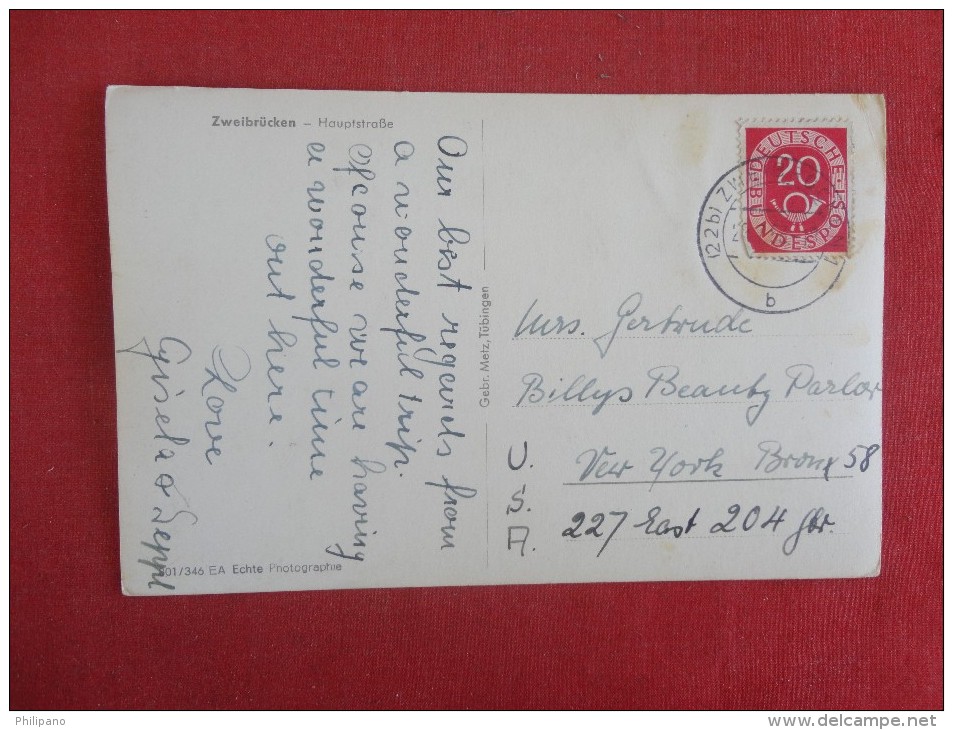 Zweibrücken – Hauptstraße
Our best regards from
a wonderful trip.
Ofcourse we are having
a wonderful time
out here.
Love
Gisela & Seppl
Gebr. Metz, Tübingen
801/346 EA Echte Photographie
DEUTSCHE
20
BUNDESPOST
(22b) ZWEI
b
Mrs. Gertrude
Billys Beauty Parlor
New York Bronx 58
227 East 204 Str.
U.
S.
A.
Philipano
www.delcampe.net